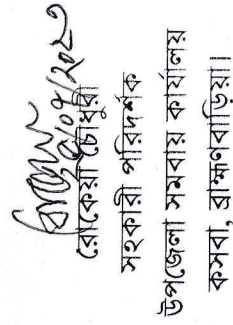 রোকেয়া চৌধুরী
সহকারী পরিদর্শক
উপজেলা সমবায় কার্যালয়
কসবা, ব্রাহ্মণবাড়িয়া।